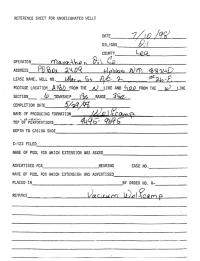 REFERENCE SHEET FOR UNDESIGNATED WELLS
DATE 7/10/98
OIL/GAS Oil
COUNTY Lea
OPERATOR Marathon Oil Co
ADDRESS PO Box 2409 Hobbs NM 88240
LEASE NAME, WELL NO.
FOOTAGE LOCATION FROM THE N LINE AND FROM THE W LINE
SECTION 6 TOWNSHIP RANGE
COMPLETION DATE
NAME OF PRODUCING FORMATION Wolfcamp
TOP OF PERFORATIONS
DEPTH TO CASING SHOE
C-123 FILED
NAME OF POOL FOR WHICH EXTENSION WAS ASKED
ADVERTISED FOR HEARING CASE NO.
NAME OF POOL FOR WHICH EXTENSION WAS ADVERTISED
PLACED IN BY ORDER NO. R-
REMARKS Vacuum Wolfcamp